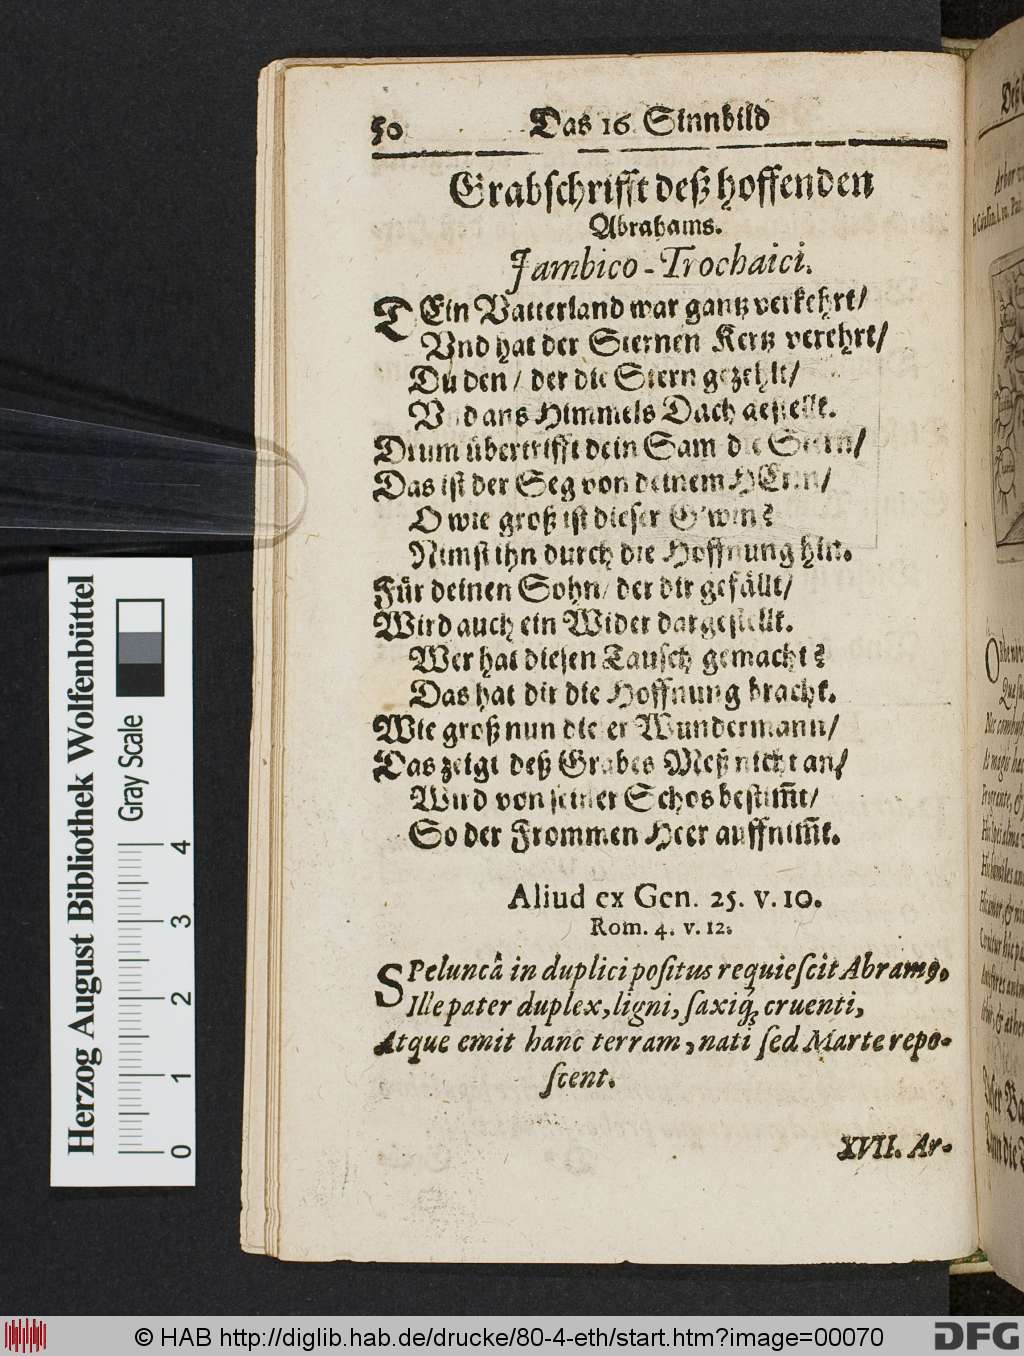 50 Das 16 Sinnbild
Grabschrifft deß hoffenden
Abrahams.
Jambico-Trochaici.
DEin Vatterland war gantz verkehrt/
Vnd hat der Sternen Kertz verehrt/
Du den / der die Stern gezehlt/
Vnd ans Himmels Dach gestellt.
Drum übertrifft dein Sam die Stern/
Das ist der Seg von deinem HErrn/
O wie groß ist dieser G'win?
Nimst ihn durch die Hoffnung hin.
Für deinen Sohn/ der dir gefällt/
Wird auch ein Wider dargestellt.
Wer hat diesen Tausch gemacht?
Das hat dir die Hoffnung bracht.
Wie groß nun dieser Wundermann/
Das zeigt deß Grabes Meß nicht an/
Wird von seiner Schos bestim̄t/
So der Frommen Heer auffnim̄t.
Aliud ex Gen. 25. v. 10.
Rom. 4. v. 12.
SPeluncâ in duplici positus requiescit Abramꝰ,
Ille pater duplex, ligni, saxiq; cruenti,
Atque emit hanc terram, nati sed Marte repo-
scent.
XVII. Ar-
Herzog August Bibliothek Wolfenbüttel
Gray Scale
0 1 2 3 4
© HAB http://diglib.hab.de/drucke/80-4-eth/start.htm?image=00070
DFG